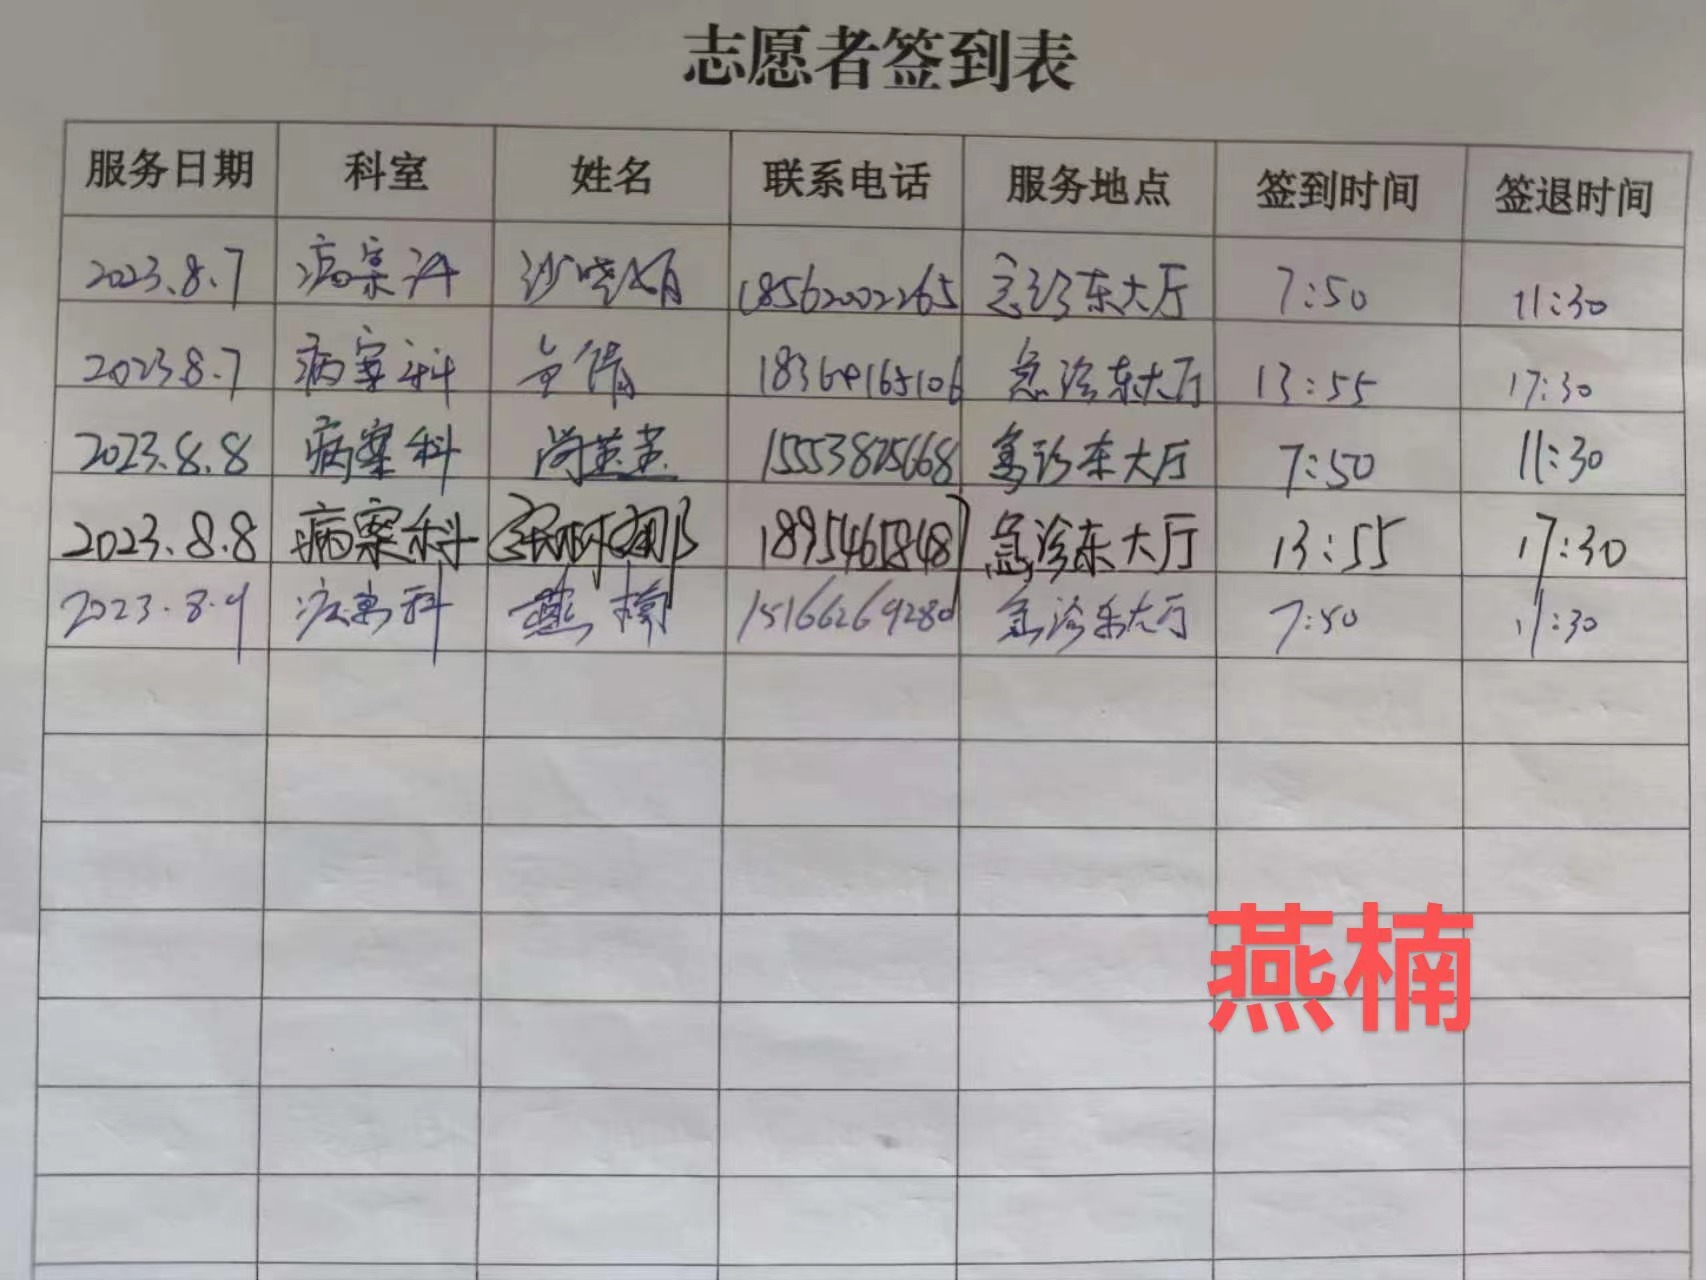 志愿者签到表
服务日期 科室 姓名 联系电话 服务地点 签到时间 签退时间
2023.8.7 病案科 沙晓娟 18562002265 急诊东大厅 7:50 11:30
2023.8.7 病案科 18364165106 急诊东大厅 13:55 17:30
2023.8.8 病案科 尚燕燕 15553825668 急诊东大厅 7:50 11:30
2023.8.8 病案科 急诊东大厅 13:55 17:30
2023.8.9 病案科 燕楠 15166269280 急诊东大厅 7:50 11:30
燕楠